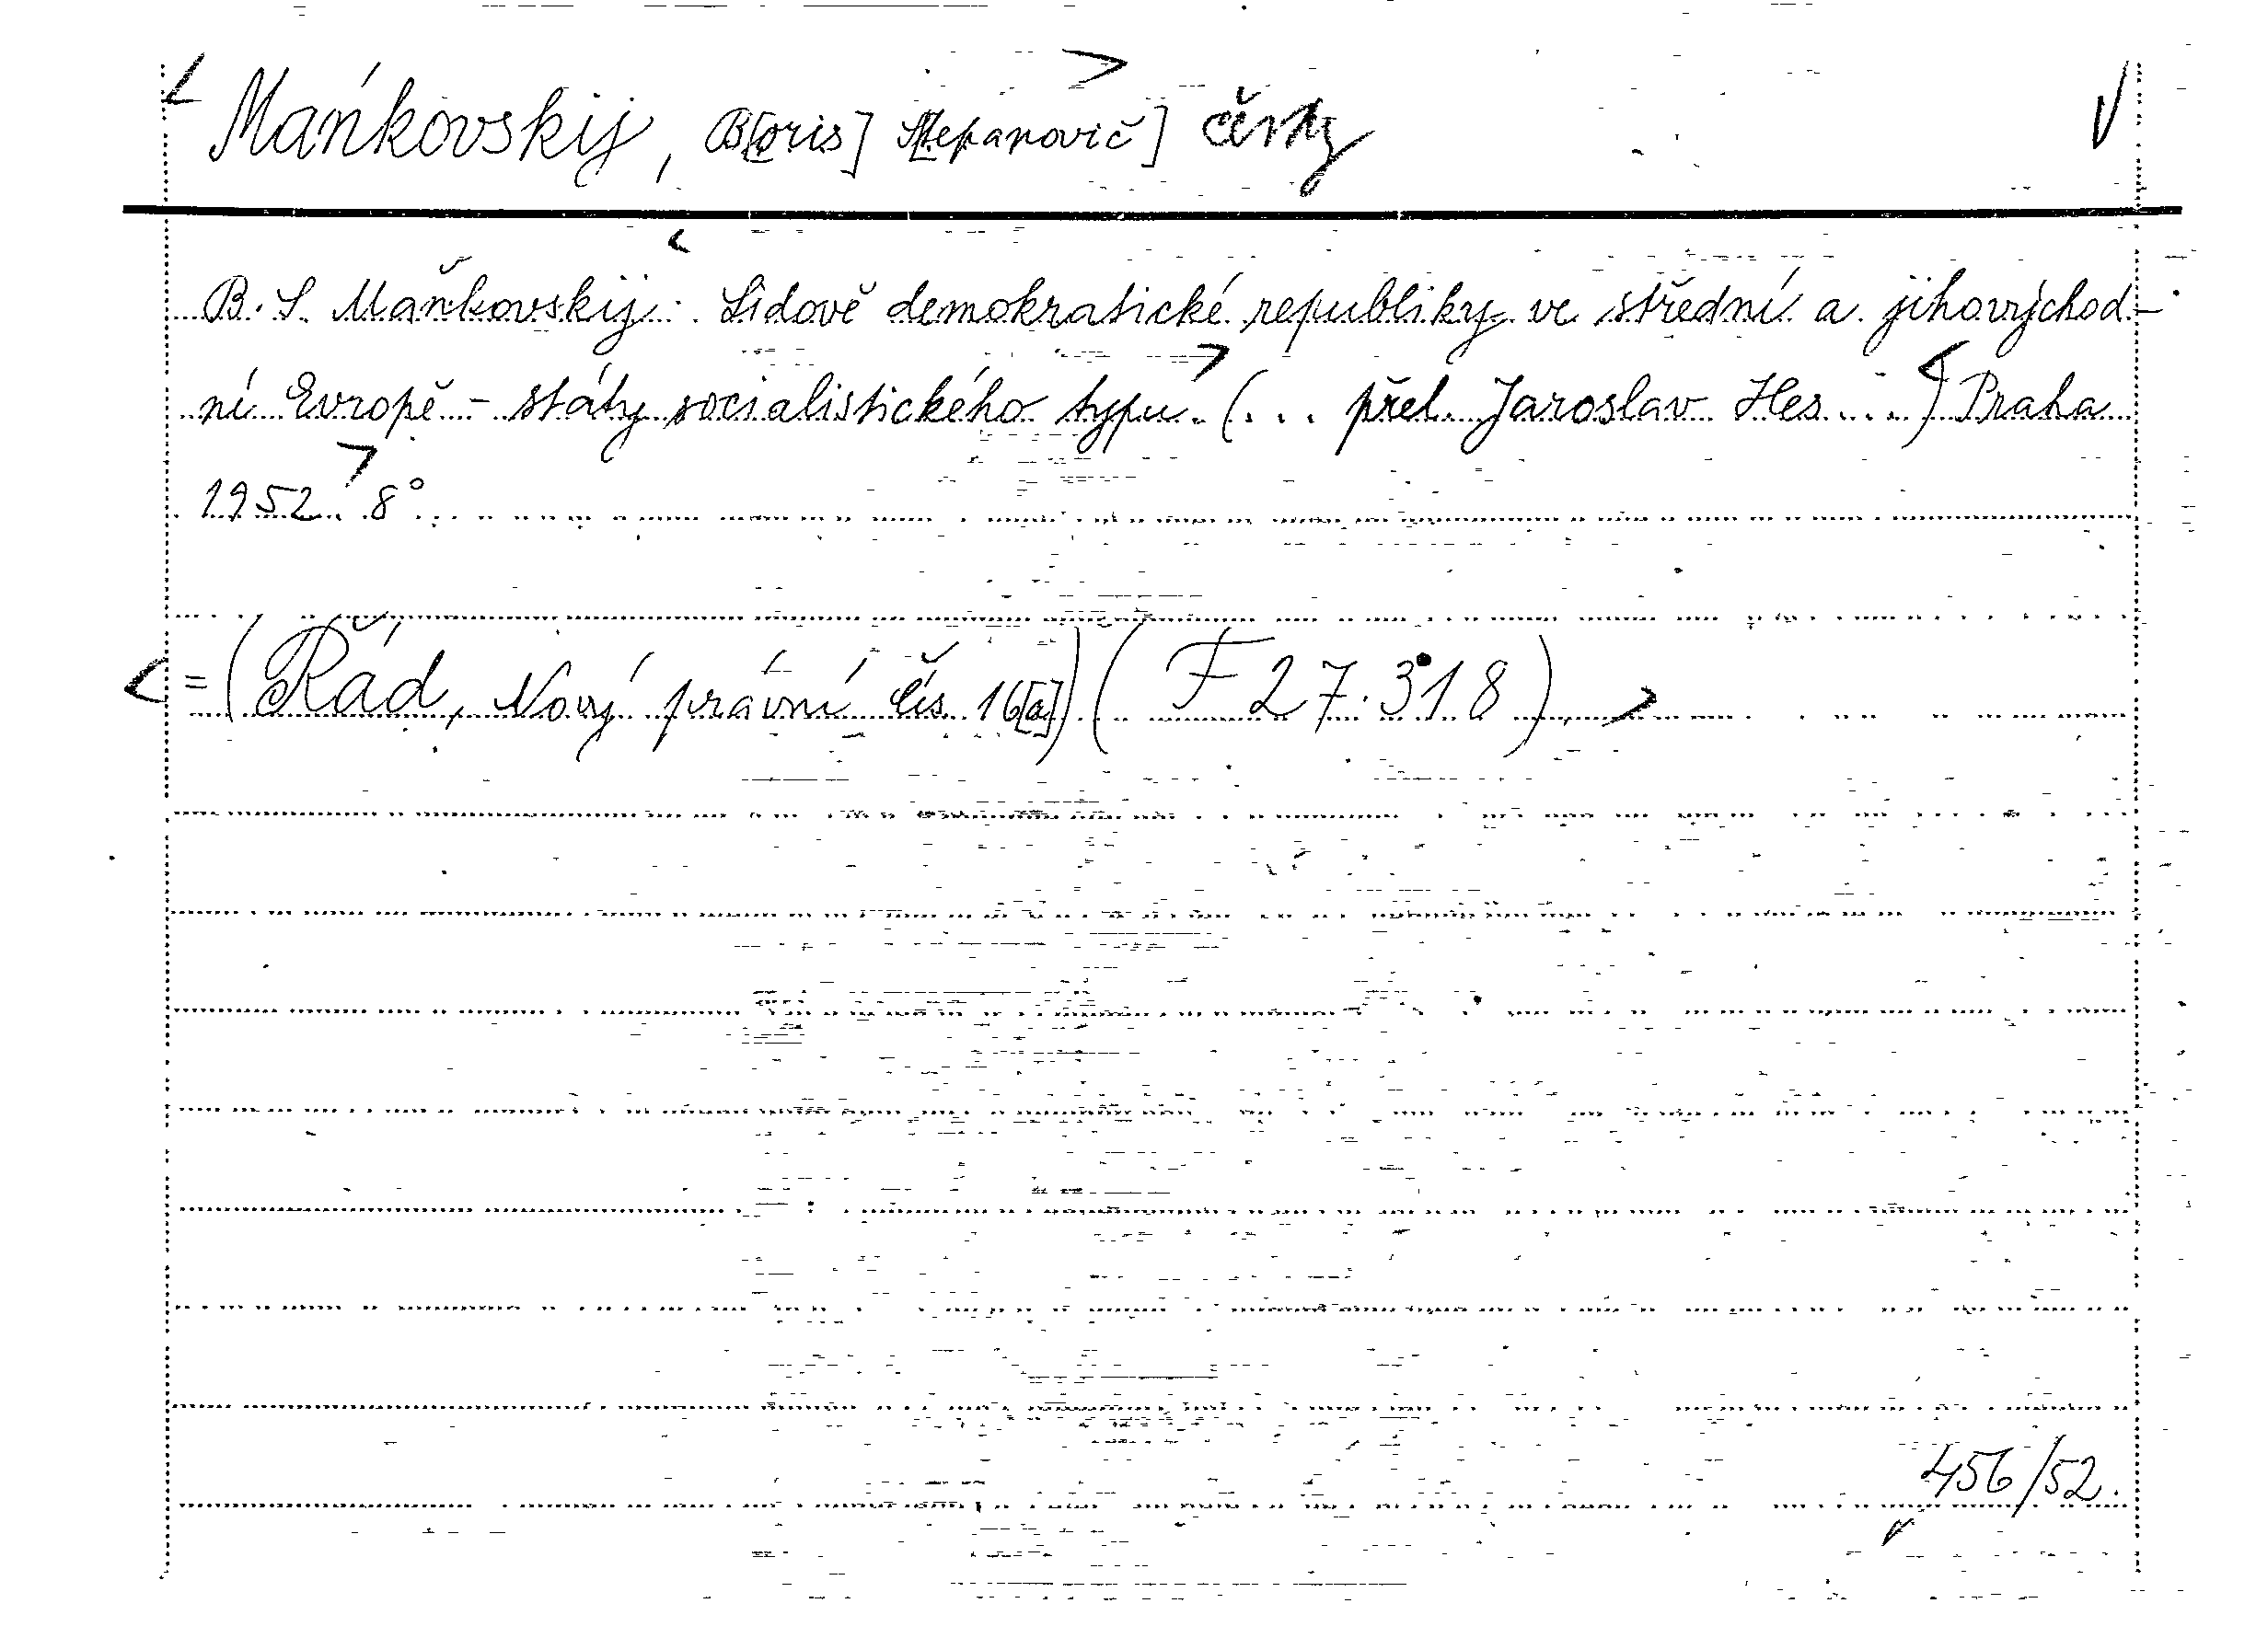 < Mańkovskij, B[oris] S[tepanovič] > česky √
B. S. Maňkovskij: < Lidově demokratické republiky ve střední a jihovýchod-
ní Evropě - státy socialistického typu. > (... přel. Jaroslav Hes...) < Praha
1952. > 8°.
< = (Řád, Nový právní čís. 16[a]) (F 27.318) >
456/52.